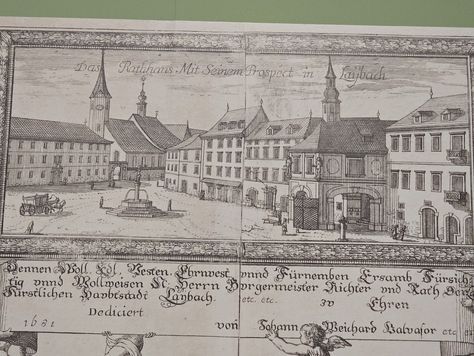 Das Rathhaus Mit Seinem Prospect in Laÿbach
Denen Woll Edl. Vesten. Ehrnvest vnnd Fürnemben Ersamb Fürsich
tig vnnd Wollweisen N. Herrn Burgermeister Richter vnd Rath Der
Fürstlichen Haubtstadt Laÿbach. etc. etc. zv Ehren
Dediciert
1681 von Johann Weichard Valvasor etc. etc.